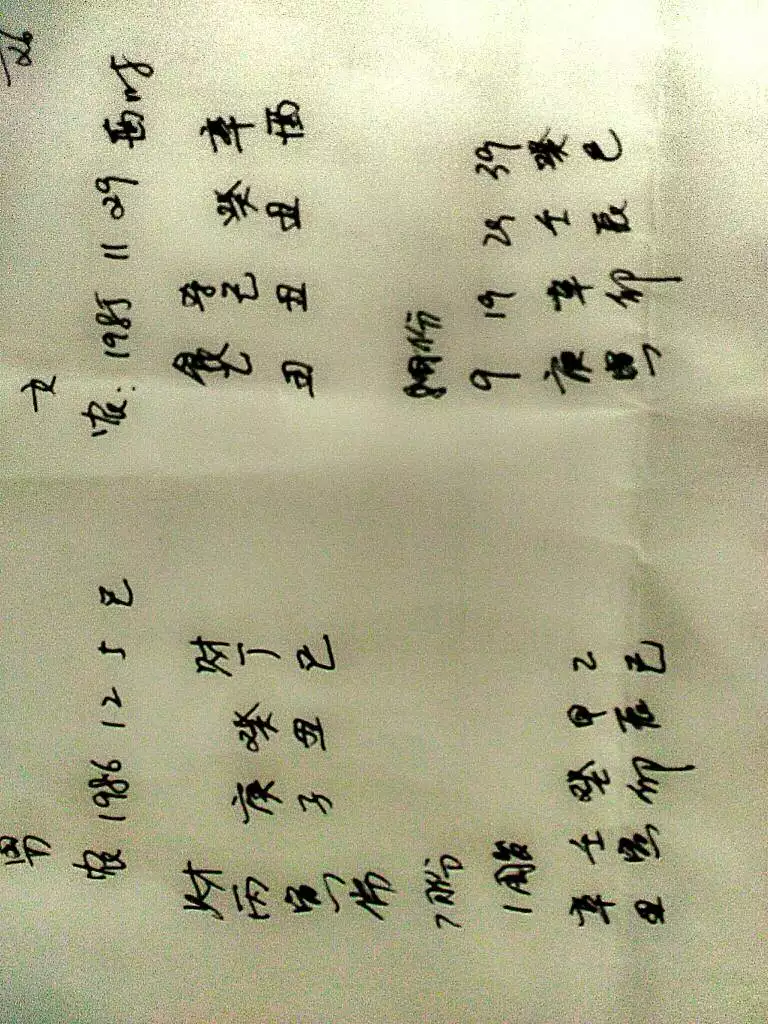 男
农 1986 12 5 巳
财 财
丙 庚 癸 丁
寅 子 丑 巳
伤
7月份
1周岁
辛 壬 癸 甲 乙
丑 寅 卯 辰 巳
女 26
农: 1985 11 29 酉时
食乙 己 癸 辛
丑 丑 丑 酉
9 19 29 39
庚 辛 壬 癸
寅 卯 辰 巳